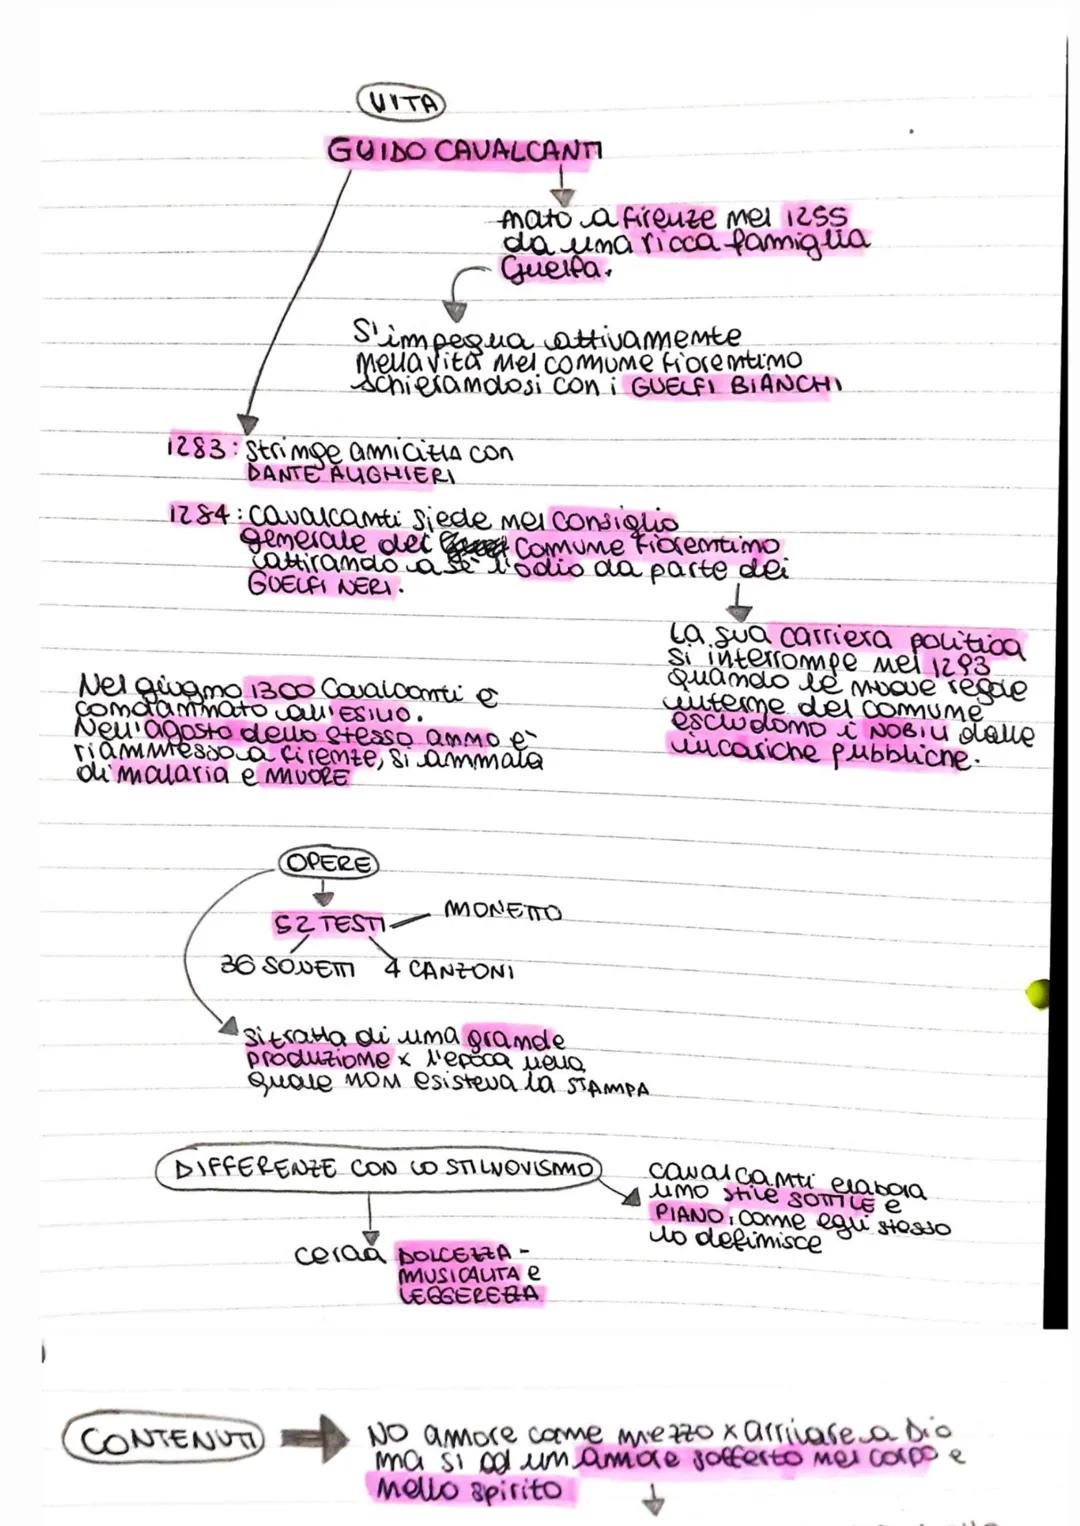 VITA
GUIDO CAVALCANTI
nato a firenze nel 1255
da una ricca famiglia
Guelfa.
S'impegna attivamente
nella vita nel comune fiorentino
schierandosi con i GUELFI BIANCHI
1283: Stringe amicizia con
DANTE ALIGHIERI
1284: Cavalcanti siede nel consiglio
generale del Comune fiorentino
attirando a sé l'odio da parte dei
GUELFI NERI.
La sua carriera politica
si interrompe nel 1293
quando le nuove regole
interne del comune
escludono i NOBILI dalle
incariche pubbliche.
Nel giugno 1300 Cavalcanti è
condannato all'ESILIO.
Nell'agosto dello stesso anno è
riammesso a firenze, si ammala
di malaria e MUORE
OPERE
52 TESTI
MONETTO
36 SONETTI 4 CANZONI
si tratta di una grande
produzione x l'epoca nella
quale NON esisteva la STAMPA
DIFFERENZE CON LO STILNOVISMO
cavalcanti elabora
uno stile SOTTILE e
PIANO, come egli stesso
lo definisce
cerca DOLCEZZA -
MUSICALITÀ e
LEGGEREZZA
CONTENUTI
NO amore come mezzo x arrivare a Dio
ma si ad un amore sofferto nel corpo e
nello spirito